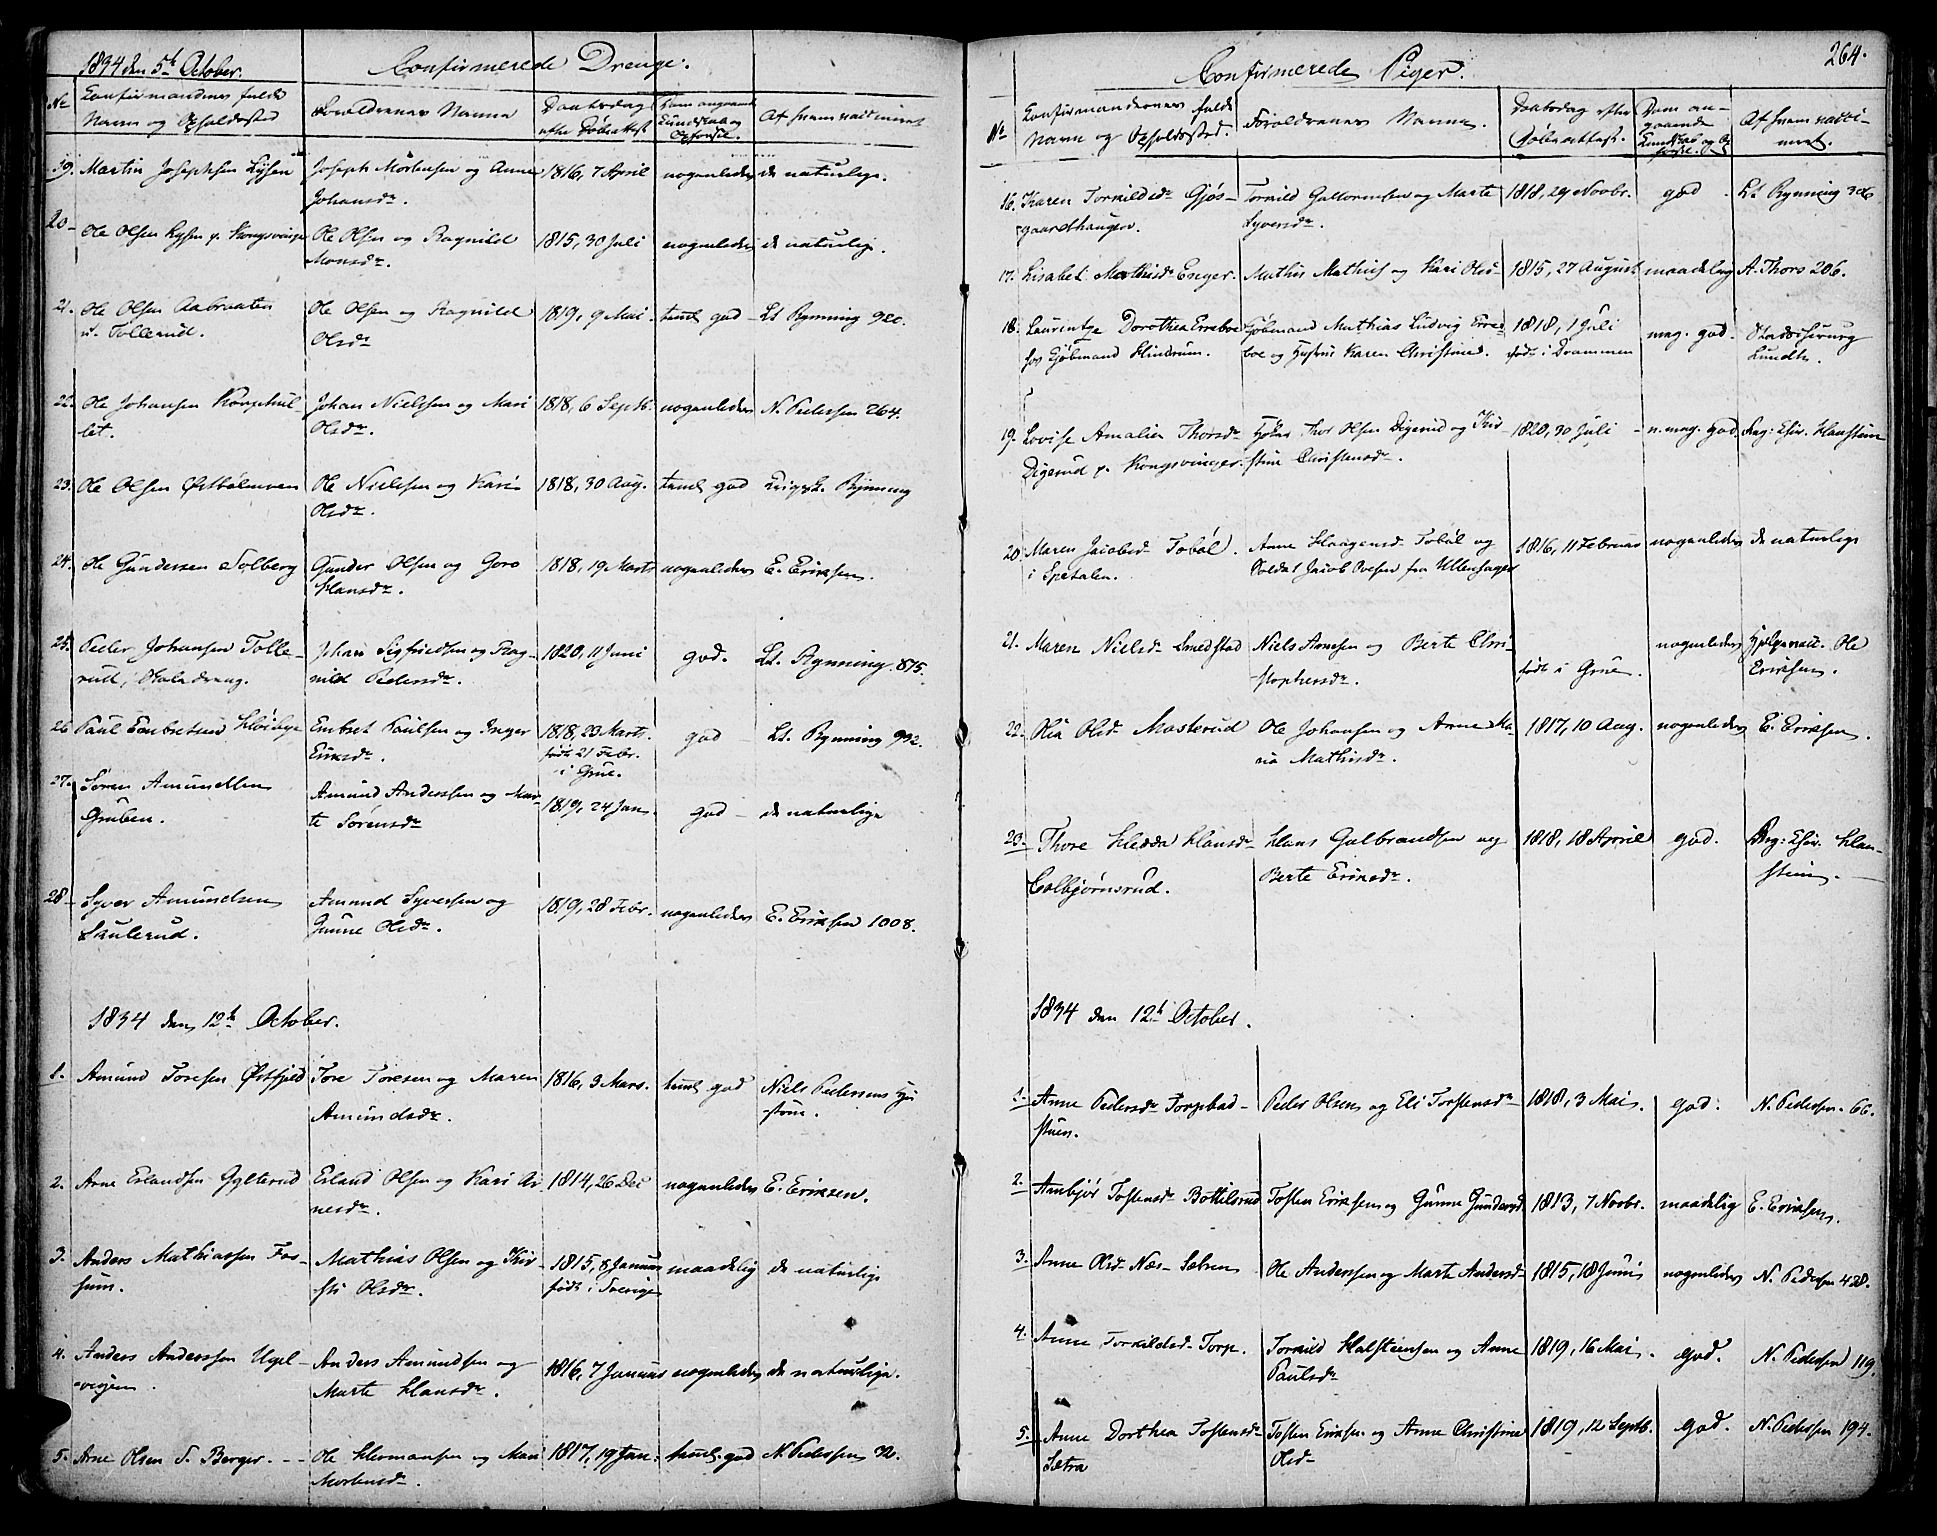 1834 den 5t October.
Confirmerede Drenge.
No
Confirmandens fulde
Navn og Opholdssted
Forældrenes Navne
Daabsdag
efter Døbeattest
Dom angaaende
Kundskab og
Opførsel.
Af hvem vaccineret
19. Martin Josephsen Lysen
Joseph Mortensen og Anne
Johansdr.
1816, 7 April
nogenledes
de naturlige.
20
Ole Olsen Rysen p. Kongsvinger
Ole Olsen og Ragnild
Monsdr.
1815, 30 Juli
nogenledes
de naturlige.
21. Ole Olsen Aabraaten
u. Tollerud.
Ole Olsen og Ragnild
Olsdr.
1819, 9 Mai.
teml. god
Lt Rynning 920.
22. Ole Johansen Kongshul-
let.
Johan Nielsen og Mari
Olsdr.
1818, 6 Septb.
nogenledes
N. Pedersen 264.
23. Ole Olsen Østbølenoen
Ole Nielsen og Kari
Olsdr.
1818, 30 Aug.
teml god
Rynning
24. Ole Gundersen Solberg
Gunder Olsen og Goro
Hansdr.
1818, 19 Marts
nogenledes
E. Eriksen.
25. Peder Johansen Tolle-
rud, Skoledreng.
Johan Sigfridsen og Rag-
nild Pedersdr.
1820, 11 Juni
god.
Lt. Rynning 875.
26 Paul Embretsen Kløibye
Embret Paulsen og Inger
Eriksdr.
1818, 23 Marts.
født 21 Febr.
i Grue.
god
Lt. Rynning 992.
27. Søren Amundsen
Gruben.
Amund Anderssen og Mar-
te Sørensdr
1819, 24 Jan.
god
de naturlige
28 Syver Amundsen
Saulerud.
Amund Syversen og
Gunne Olsdr.
1819, 28 Febr.
nogenledes
E. Eriksen 1008.
1834 den 12t October.
1. Amund Toresen Østfjeld
Tore Toresen og Maren
Amundsdr.
1816, 3 Mars.
teml god
Niels Pedersens Hu-
strue.
2. Arne Erlandsen Gylterud
Erland Olsen og Kari Ar-
nesdr.
1814, 26 Dec
nogenledes
E. Eriksen.
3. Anders Mathiassen Fos-
sum.
Mathias Olsen og Kir-
sti Olsdr.
1815, 8 Januar
født i Sverige
maadelig
de naturlige
4. Anders Anderssen Ugel-
vegen.
Anders Amundsen og
Marte Hansdr.
1816, 7 Januar
nogenledes
de naturlige.
5. Arne Olsen S. Berger.
Ole Hermansen og Mari
Mortensdr.
1817, 19 Jan.
teml. god
N. Pedersen 32.
264.
Confirmerede Piger.
No
Confirmandernes fulde
Navn og Opholdssted.
Forældrenes Navne.
Daabsdag efter
Døbeattest.
Dom an-
gaaende
Kundskab og Op-
førsel.
Af hvem vacci-
neret.
16. Karen Torkildsdr Gjøs-
gaardhaugen.
Torkild Guttormsen og Marte
Syversdr.
1818, 29 Novbr.
god
Lt Rynning 306
17. Lisabet Mathisdr Enger.
Mathis Mathis og Kari Olsdr
1815, 27 August
maadelig
A. Thors 206.
18. Laurentze Dorothea Erreboe
hos Kjøbmand Hindrum.
Kjøbmand Mathias Ludvig Erre-
boe og Hustru Karen Christine.
1818, 1 Juli
født i Drammen
meg. god.
Stadschirurg
Lundh.
19. Lovise Amalie Thorsdr
Digerud p. Kongsvinger
Thor Olsen Digerud og Kir-
stine Christensdr.
1820, 30 Juli
n. meg. god.
Reg: Chir. Haustein
20. Maren Jacobsdr Tobøl.
i Spetalen.
Anne Haagensdr Tobøl og
Soldat Jacob Ovesen fra Ullensager
1816, 11 Februar
nogenledes
de naturlige
21. Maren Nielsdr Smedstad
Niels Arnesen og Berte Chri-
stophersdr.
født i Grue.
nogenledes
Hjelpevacc. Ole
Eriksen.
22. Olia Olsdr Masterud
Ole Johansen og Anne Ma-
ria Mathisdr.
1817, 10 Aug.
nogenledes
E. Eriksen.
23. Thore Hedda Hansdr
Colbjørnsrud.
Hans Gulbrandsen og
Berte Eriksdr.
1818, 18 April
god.
Reg: Chir. Hau-
stein.
1834 den 12t October.
1. Anne Pedersdr Torpbad-
stuen.
Peder Olsen og Eli Torstensdr
1818, 3 Mai.
god.
N. Pedersen. 66.
2. Anbjør Tostensdr Bottilsrud
Tosten Eriksen og Gunne Gundersdr
1813, 7 Novbr.
maadelig
E. Eriksen.
3. Anne Olsdr Næs-Sætren
Ole Anderssen og Marte Andersdr
1815, 18 Juni
nogenledes
N. Pedersen 428.
4. Anne Torkildsdr Torp.
Torkild Halsteinsen og Anne
Paulsdr
1819, 16 Mai.
god.
N. Pedersen 119.
5. Anne Dorthea Tostensdr
Sætra
Tosten Eriksen og Anne Christine
Olsdr
1819, 12 Septb.
god.
N. Pedersen 194.